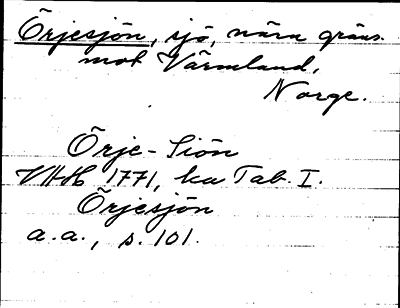 Örjesjön, sjö, nära gräns.
mot Värmland,
Norge.
Örje-Siön
VHH 1771, ka Tab. I.
Örjesjön
a.a., s. 101.